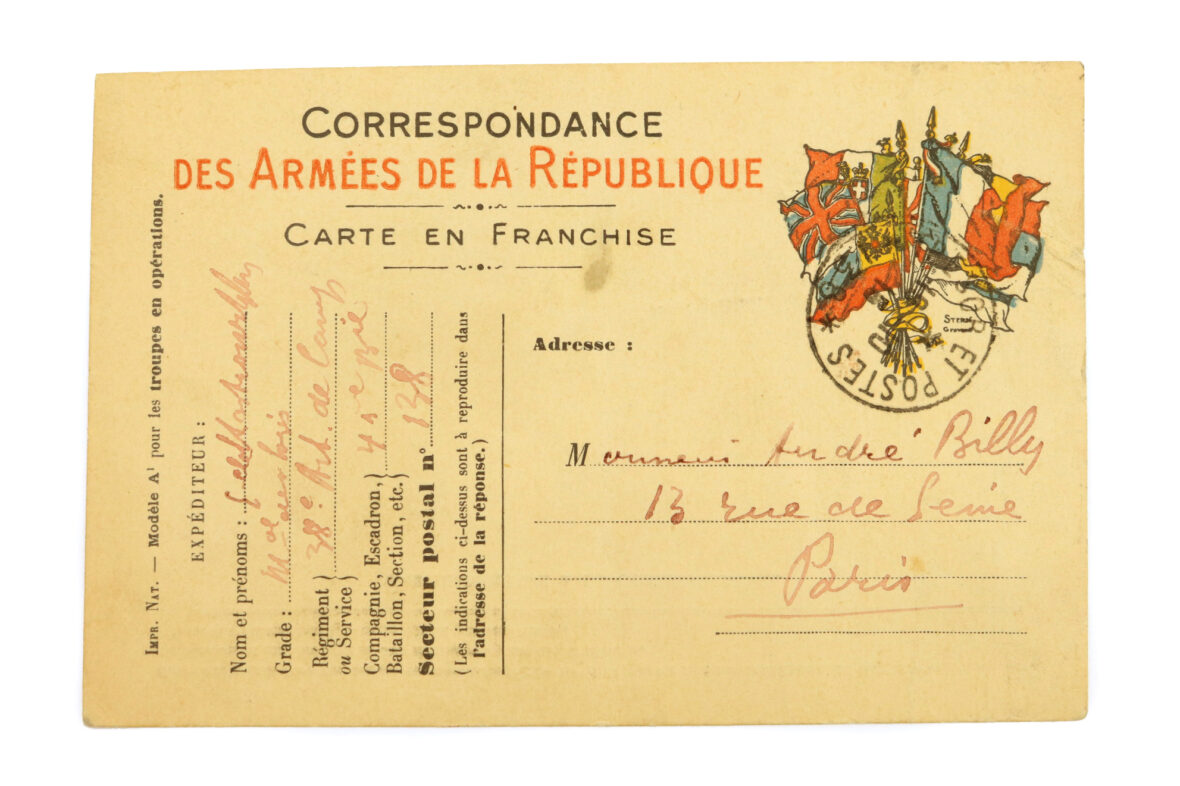 CORRESPONDANCE
DES ARMÉES DE LA RÉPUBLIQUE
CARTE EN FRANCHISE
IMPR. NAT. — Modèle A¹ pour les troupes en opérations.
EXPÉDITEUR :
Nom et prénoms :
Grade : Mᵃˡ des logis
Régiment } 38ᵉ Art. de Camp
ou Service }
Compagnie, Escadron, } 45ᵉ Bie
Bataillon, Section, etc. }
Secteur postal n° 138
(Les indications ci-dessus sont à reproduire dans
l'adresse de la réponse.)
STERN
ET POSTES *
Adresse :
Monsieur André Billy
13 rue de Seine
Paris